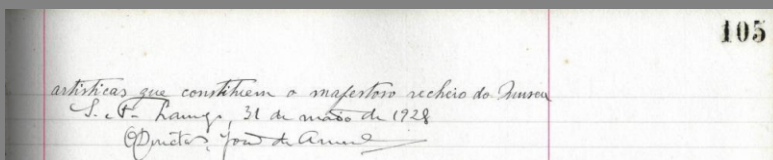 105
artisticas que constituem o magestoso recheio do Museu
S. P. Lamego, 31 de maio de 1928
O Director, João de Amaral